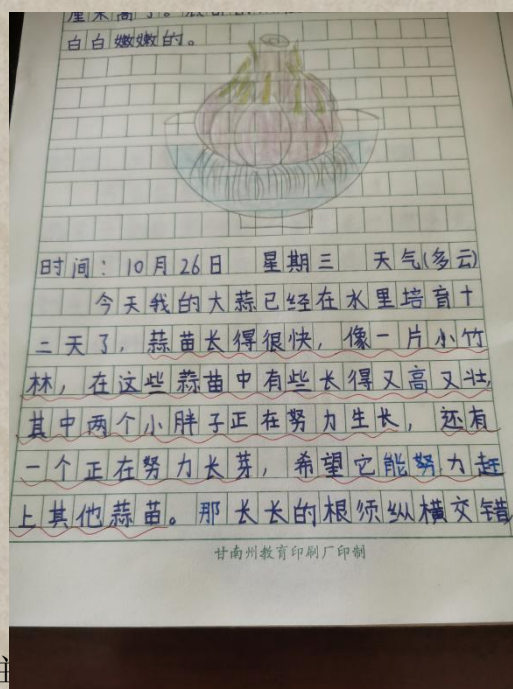 白白嫩嫩的。
时间：10月26日 星期三 天气(多云)
今天我的大蒜已经在水里培育十
二天了，蒜苗长得很快，像一片小竹
林，在这些蒜苗中有些长得又高又壮，
其中两个小胖子正在努力生长，还有
一个正在努力长芽，希望它能努力赶
上其他蒜苗。那长长的根须纵横交错
甘南州教育印刷厂印制